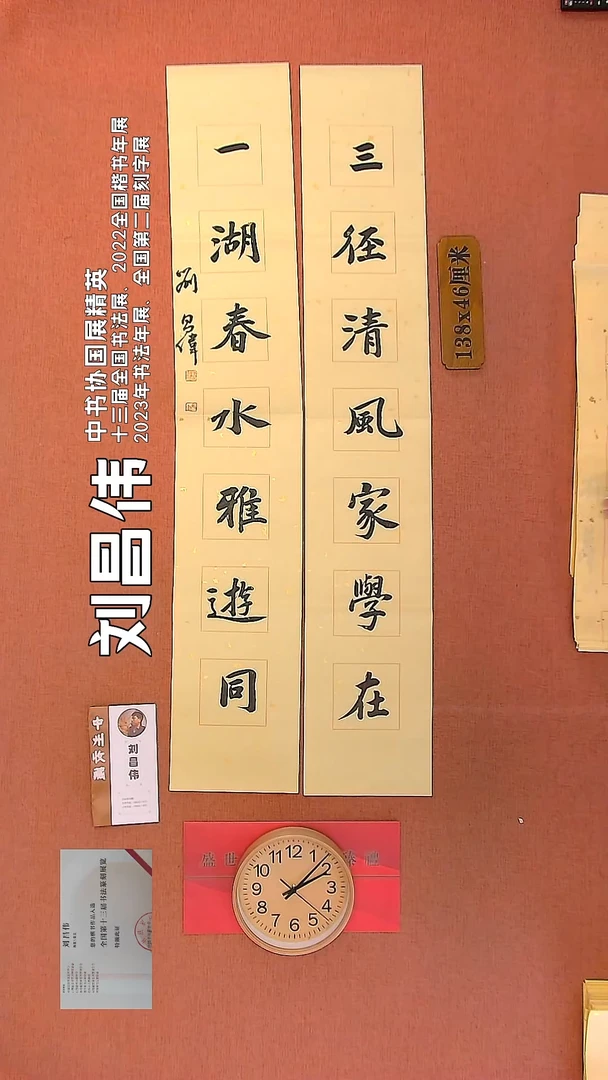 三徑清風家學在
一湖春水雅遊同
劉昌偉
138x46厘米
刘昌伟
中书协国展精英
十三届全国书法展、2022全国楷书年展
2023年书法年展、全国第二届刻字展
刘昌伟
刘昌伟
您的楷书作品入选
全国第十三届书法篆刻展览
特颁此证
盛世
12
1
2
3
4
5
6
7
8
9
10
11